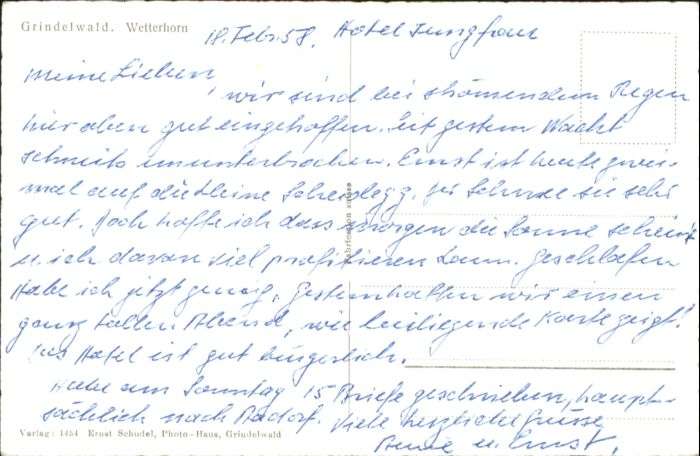 Grindelwald. Wetterhorn
18. Febr. 58. Hotel Jungfrau
Meine Lieben,
wir sind bei strömendem Regen
hier oben gut eingetroffen. Seit gestern Nacht
schneits ununterbrochen. Ernst ist heute zwei-
mal auf die kleine Scheidegg. Der Schnee sei sehr
gut. Doch hoffe ich dass morgen die Sonne scheint
u. ich davon viel profitieren kann. Geschlafen
habe ich jetzt genug. Gestern hatten wir einen
ganz tollen Abend, wie beiliegende Karte zeigt!
Das Hotel ist gut bürgerlich.
Habe am Sonntag 15 Briefe geschrieben, haupt-
sächlich nach Aadorf. Viele herzliche Grüsse
u. Ernst.
Verlag: 1454 Ernst Schudel, Photo-Haus, Grindelwald